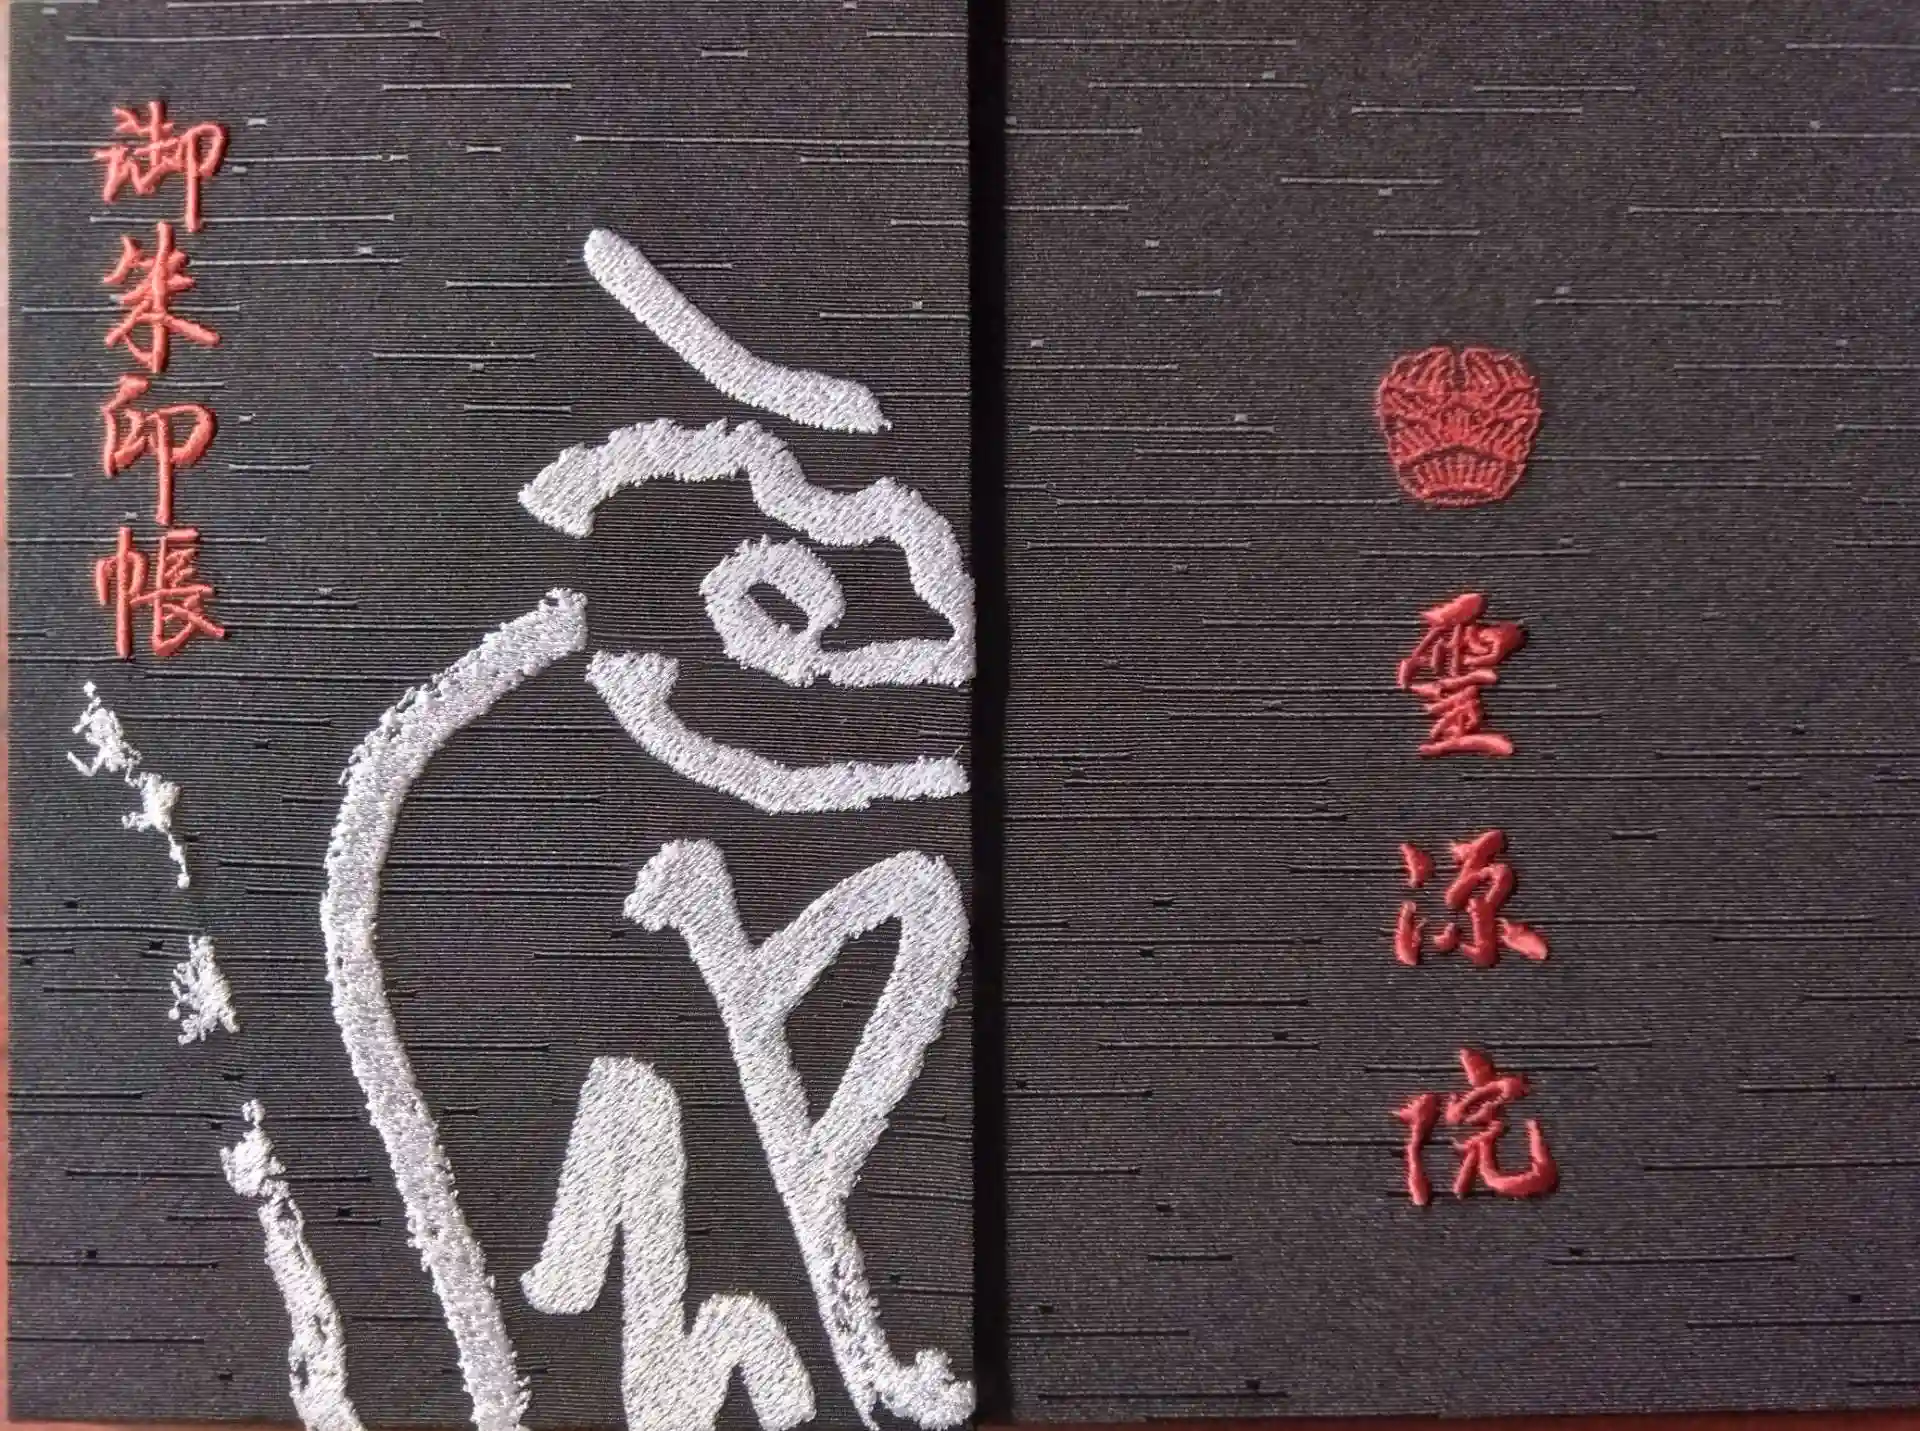 御朱印帳
聖源院